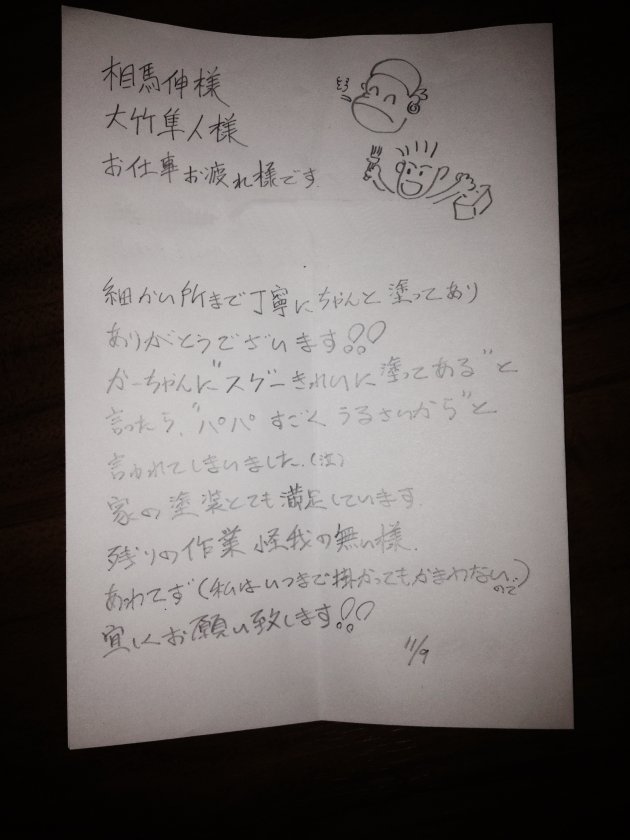 相馬伸様
大竹隼人様
お仕事お疲れ様です.
細かい所まで丁寧にちゃんと塗ってあり
ありがとうございます!!
かーちゃんに"スゲーきれいに塗ってある"と
言ったら、"パパすごくうるさいから"と
言われてしまいました.(泣)
家の塗装とても満足しています.
残りの作業怪我の無い様.
あわてず(私はいつまで掛かってもかまわないので)
宜しくお願い致します!!
11/9